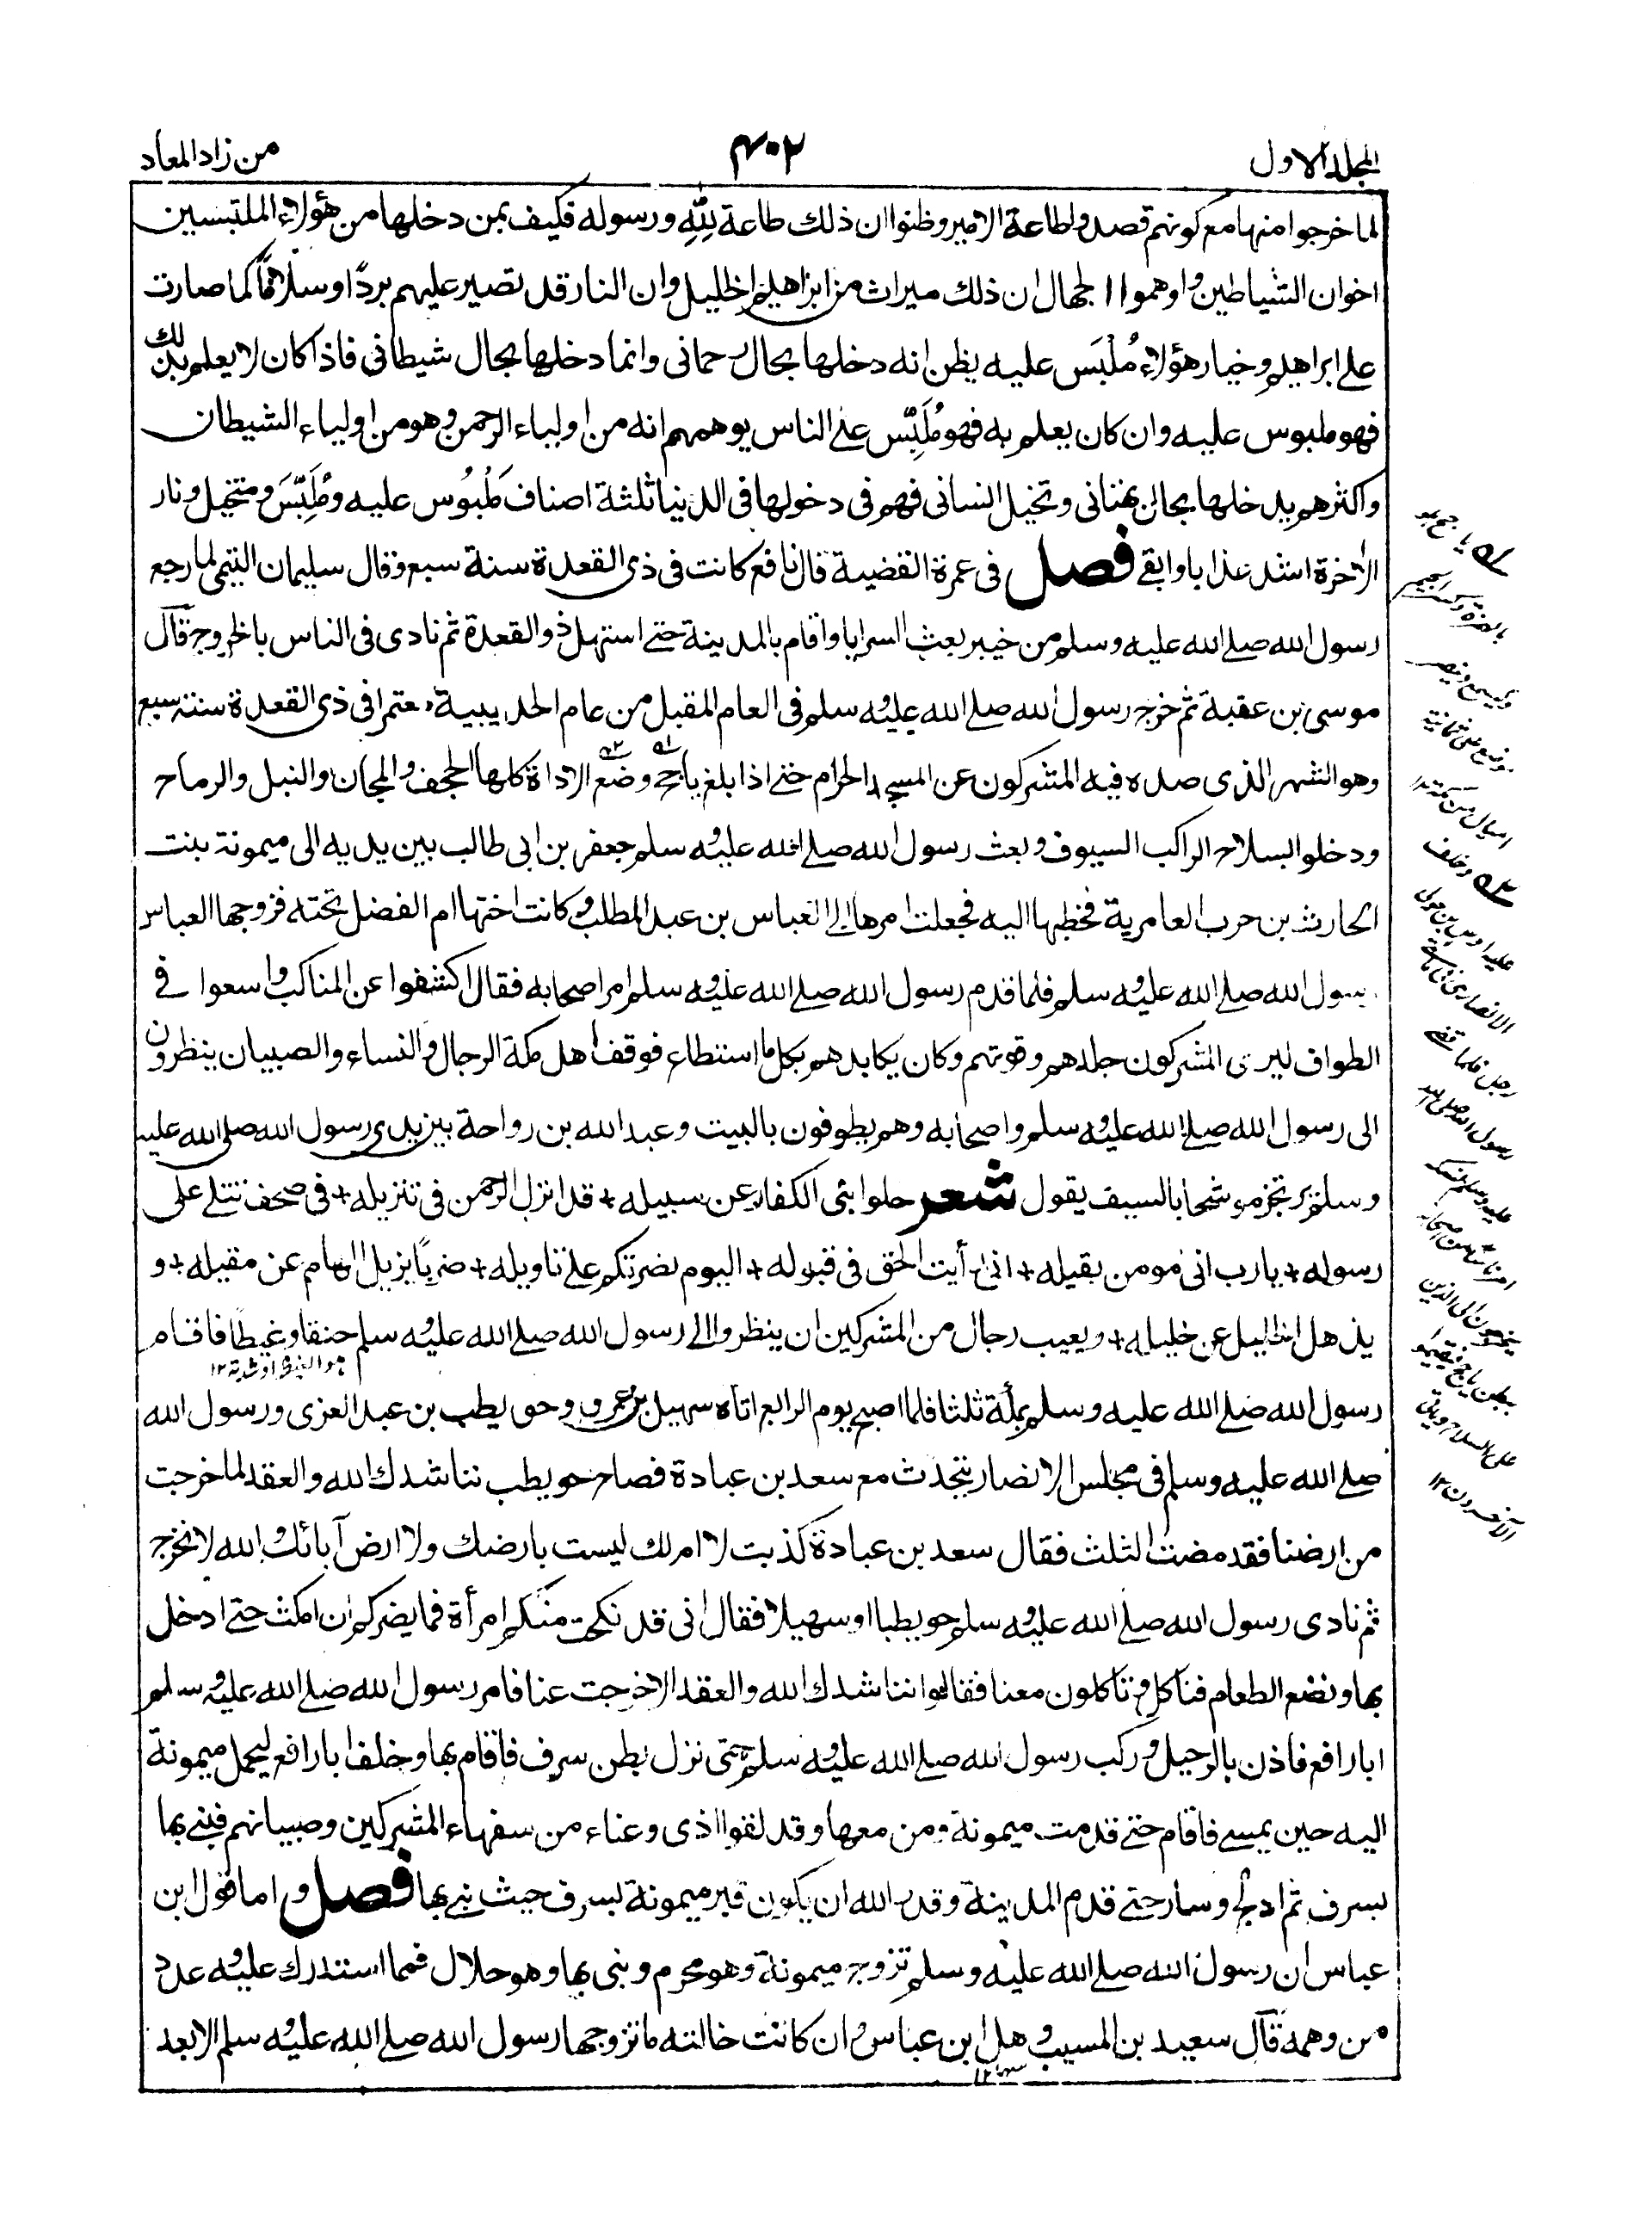 المجلد الاول
٤٠٢
من زاد المعاد
لما خرجوا منها مع كونهم قصدوا طاعة الامير وظنوا ان ذلك طاعة لِلّٰهِ ورسوله فكيف بمن دخلها من هؤلاء الملتبسين
اخوان الشياطين واوهموا الجهال ان ذلك ميراث من ابراهيم الخليل وان النار قد تصير عليهم بردًا وسلامًا كما صارت
على ابراهيم وخيار هؤلاء مُلْبَس عليه يظن انه دخلها بحال رحمانى وانما دخلها بحال شيطانى فاذا كان لا يعلم بذلك
فهو ملبوس عليه وان كان يعلم به فهو مُلَبِّس على الناس يوهمهم انه من اولياء الرحمن وهو من اولياء الشيطان
واكثرهم يدخلها بحال بهتانى وتخيل انسانى فهم فى دخولها فى الدنيا ثلثة اصناف مَلْبُوْس عليه ومُلَبِّسٌ ومتخيل ونار
الاخرة اشد عذابا وابقى فصل فى عمرة القضية قال نافع كانت فى ذى القعدة سنة سبع وقال سليمان التيمى لما رجع
رسول الله صلے الله عليه وسلم من خيبر بعث السرايا واقام بالمدينة حتى استهل ذو القعدة ثم نادى فى الناس بالخروج قال
موسى بن عقبة ثم خرج رسول الله صلے الله عليه وسلم فى العام المقبل من عام الحديبية معتمرا فى ذى القعدة سنة سبع
وهو الشهر الذى صده فيه المشركون عن المسجد الحرام حتى اذا بلغ يأجج وضع الاداة كلها الحجف والمجان والنبل والرماح
ودخلوا بسلاح الراكب السيوف وبعث رسول الله صلے الله عليه وسلم جعفر بن ابى طالب بين يديه الى ميمونة بنت
الحارث بن حرب العامرية فخطبها اليه فجعلت امرها الى العباس بن عبد المطلب وكانت اختها ام الفضل تحته فزوجها العباس
رسول الله صلے الله عليه وسلم فلما قدم رسول الله صلے الله عليه وسلم امر اصحابه فقال اكشفوا عن المناكب واسعوا فى
الطواف ليرى المشركون جلدهم وقوتهم وكان يكايدهم بكل ما استطاع فوقف اهل مكة الرجال والنساء والصبيان ينظرون
الى رسول الله صلے الله عليه وسلم واصحابه وهم يطوفون بالبيت وعبد الله بن رواحة بين يدى رسول الله صلى الله عليه
وسلم يرتجز متوشحا بالسيف يقول شعر خلوا بنى الكفار عن سبيله + قد انزل الرحمن فى تنزيله + فى صحف تتلى على
رسوله + يا رب انى مومن بقيله + انى رأيت الحق فى قبوله + اليوم نضربكم على تاويله + ضربًا يزيل الهام عن مقيله + و
يذهل الخليل عن خليله + ويعيب رجال من المشركين ان ينظروا الى رسول الله صلے الله عليه وسلم حنقا وغيظا فاقام
هو الغيظ او شدته ١٢
رسول الله صلے الله عليه وسلم بمكة ثلثا فلما اصبح يوم الرابع اتاه سهيل بن عمرو وحويطب بن عبد العزى ورسول الله
صلے الله عليه وسلم فى مجلس الانصار يتحدث مع سعد بن عبادة فصاح حويطب نناشدك الله والعقد لما خرجت
من ارضنا فقد مضت الثلث فقال سعد بن عبادة كذبت لا ام لك ليست بارضك ولا ارض آبائك والله لا نخرج
ثم نادى رسول الله صلے الله عليه وسلم حويطبا او سهيلا فقال انى قد نكحت منكم امرأة فما يضركم ان امكث حتى ادخل
بها ونضع الطعام فناكل وتاكلون معنا فقالوا نناشدك الله والعقد الا خرجت عنا فامر رسول الله صلے الله عليه وسلم
ابا رافع فاذن بالرحيل وركب رسول الله صلے الله عليه وسلم حتى نزل بطن سرف فاقام بها وخلف ابا رافع ليحمل ميمونة
اليه حين يمسى فاقام حتى قدمت ميمونة ومن معها وقد لقوا اذى وعناء من سفهاء المشركين وصبيانهم فبنى بها
بسرف ثم ادلج وسار حتى قدم المدينة وقدر الله ان يكون قبر ميمونة بسرف حيث بنى بها فصل واما قول ابن
عباس ان رسول الله صلے الله عليه وسلم تزوج ميمونة وهو محرم وبنى بها وهو حلال فمما استدرك عليه وعدد
من وهمه قال سعيد بن المسيب وهل ابن عباس وان كانت خالته ما تزوجها رسول الله صلے الله عليه وسلم الا بعد
سها ١٢
له يا جج
بالهمزة وكسر الجيم
كيسمع وينصر
موضع على ثمانية
اميال من مكة
له وخلف
عليه اوس بن خولى
الانصارى فى مائة
رجل فلما قضى
رسول الله صلى الله
عليه وسلم نسكه
امر ناسا من اصحابه
يذهبون الى الذين
ببطن ياجج فيقيموا
على السلاح ويأتى
الآخرون ١٢